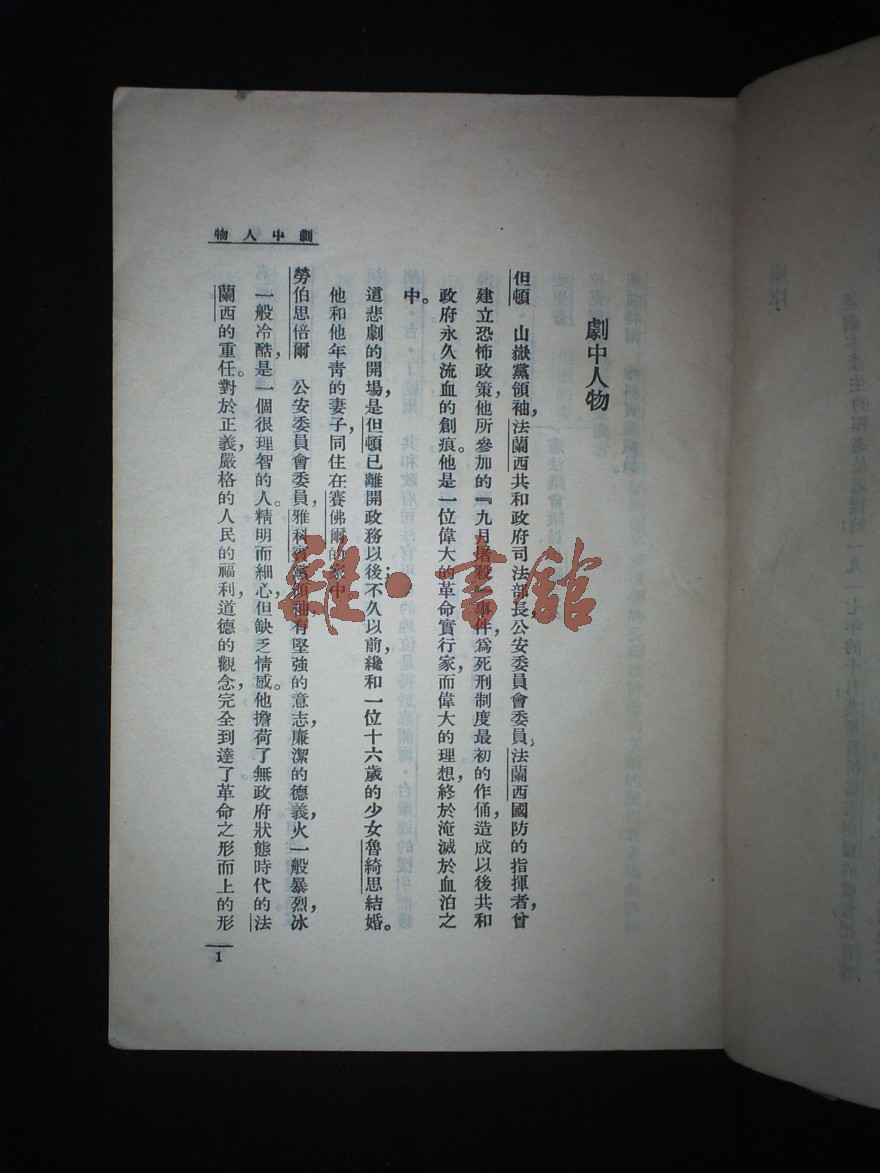 劇中人物
劇中人物
但頓 山嶽黨領袖，法蘭西共和政府司法部長公安委員會委員、法蘭西國防的指揮者，曾
建立恐怖政策，他所參加的『九月屠殺』事件，爲死刑制度最初的作俑，造成以後共和
政府永久流血的創痕。他是一位偉大的革命實行家，而偉大的理想，終於淹滅於血泊之
中。
這悲劇的開場，是但頓已離開政務以後；不久以前，纔和一位十六歲的少女魯綺思結婚。
他和他年青的妻子，同住在賽佛爾的家中
勞伯思倍爾 公安委員會委員，雅科賓黨領袖，有堅強的意志，廉潔的德義，火一般暴烈，冰
一般冷酷，是一個很理智的人。精明而細心，但缺乏情感。他擔荷了無政府狀態時代的法
蘭西的重任。對於正義，嚴格的人民的福利，道德的觀念，完全到達了革命之形而上的形
1
雜·書館